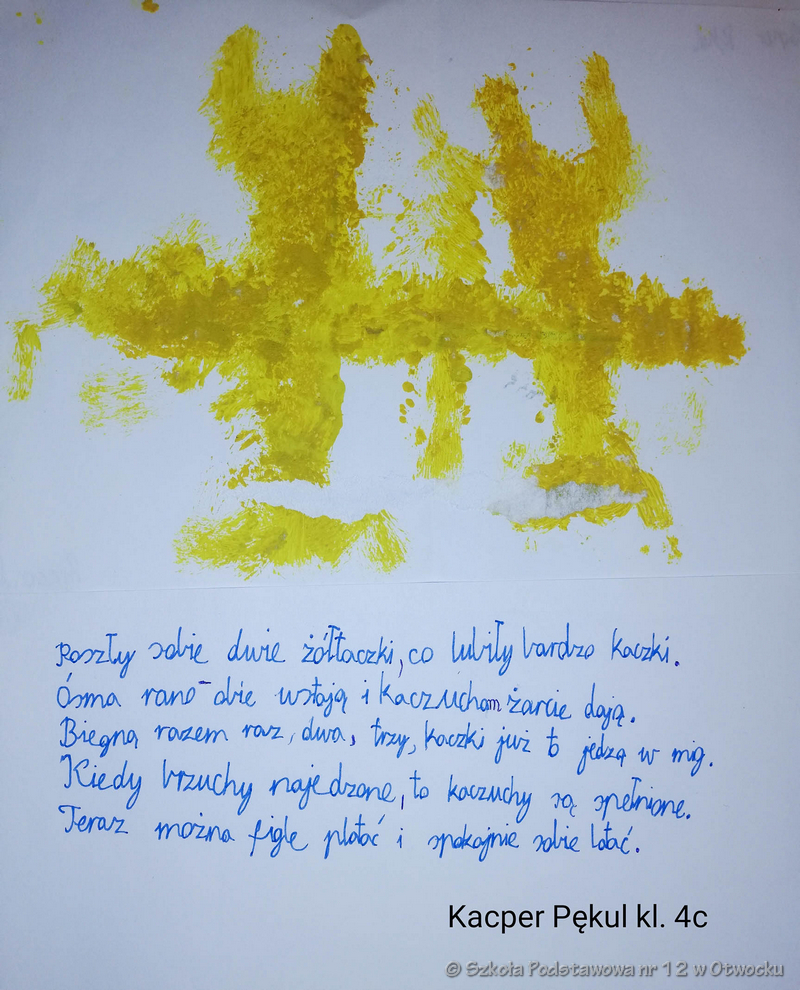 Poszły sobie dwie żółtaczki, co lubiły bardzo kaczki.
Ósma rano - obie wstają i kaczuchom żarcie dają.
Biegną razem raz, dwa, trzy, kaczki już to jedzą w mig.
Kiedy brzuchy najedzone, to kaczuchy są spełnione.
Teraz można figle płatać i spokojnie sobie latać.
Kacper Pękul kl. 4c
© Szkoła Podstawowa nr 12 w Otwocku